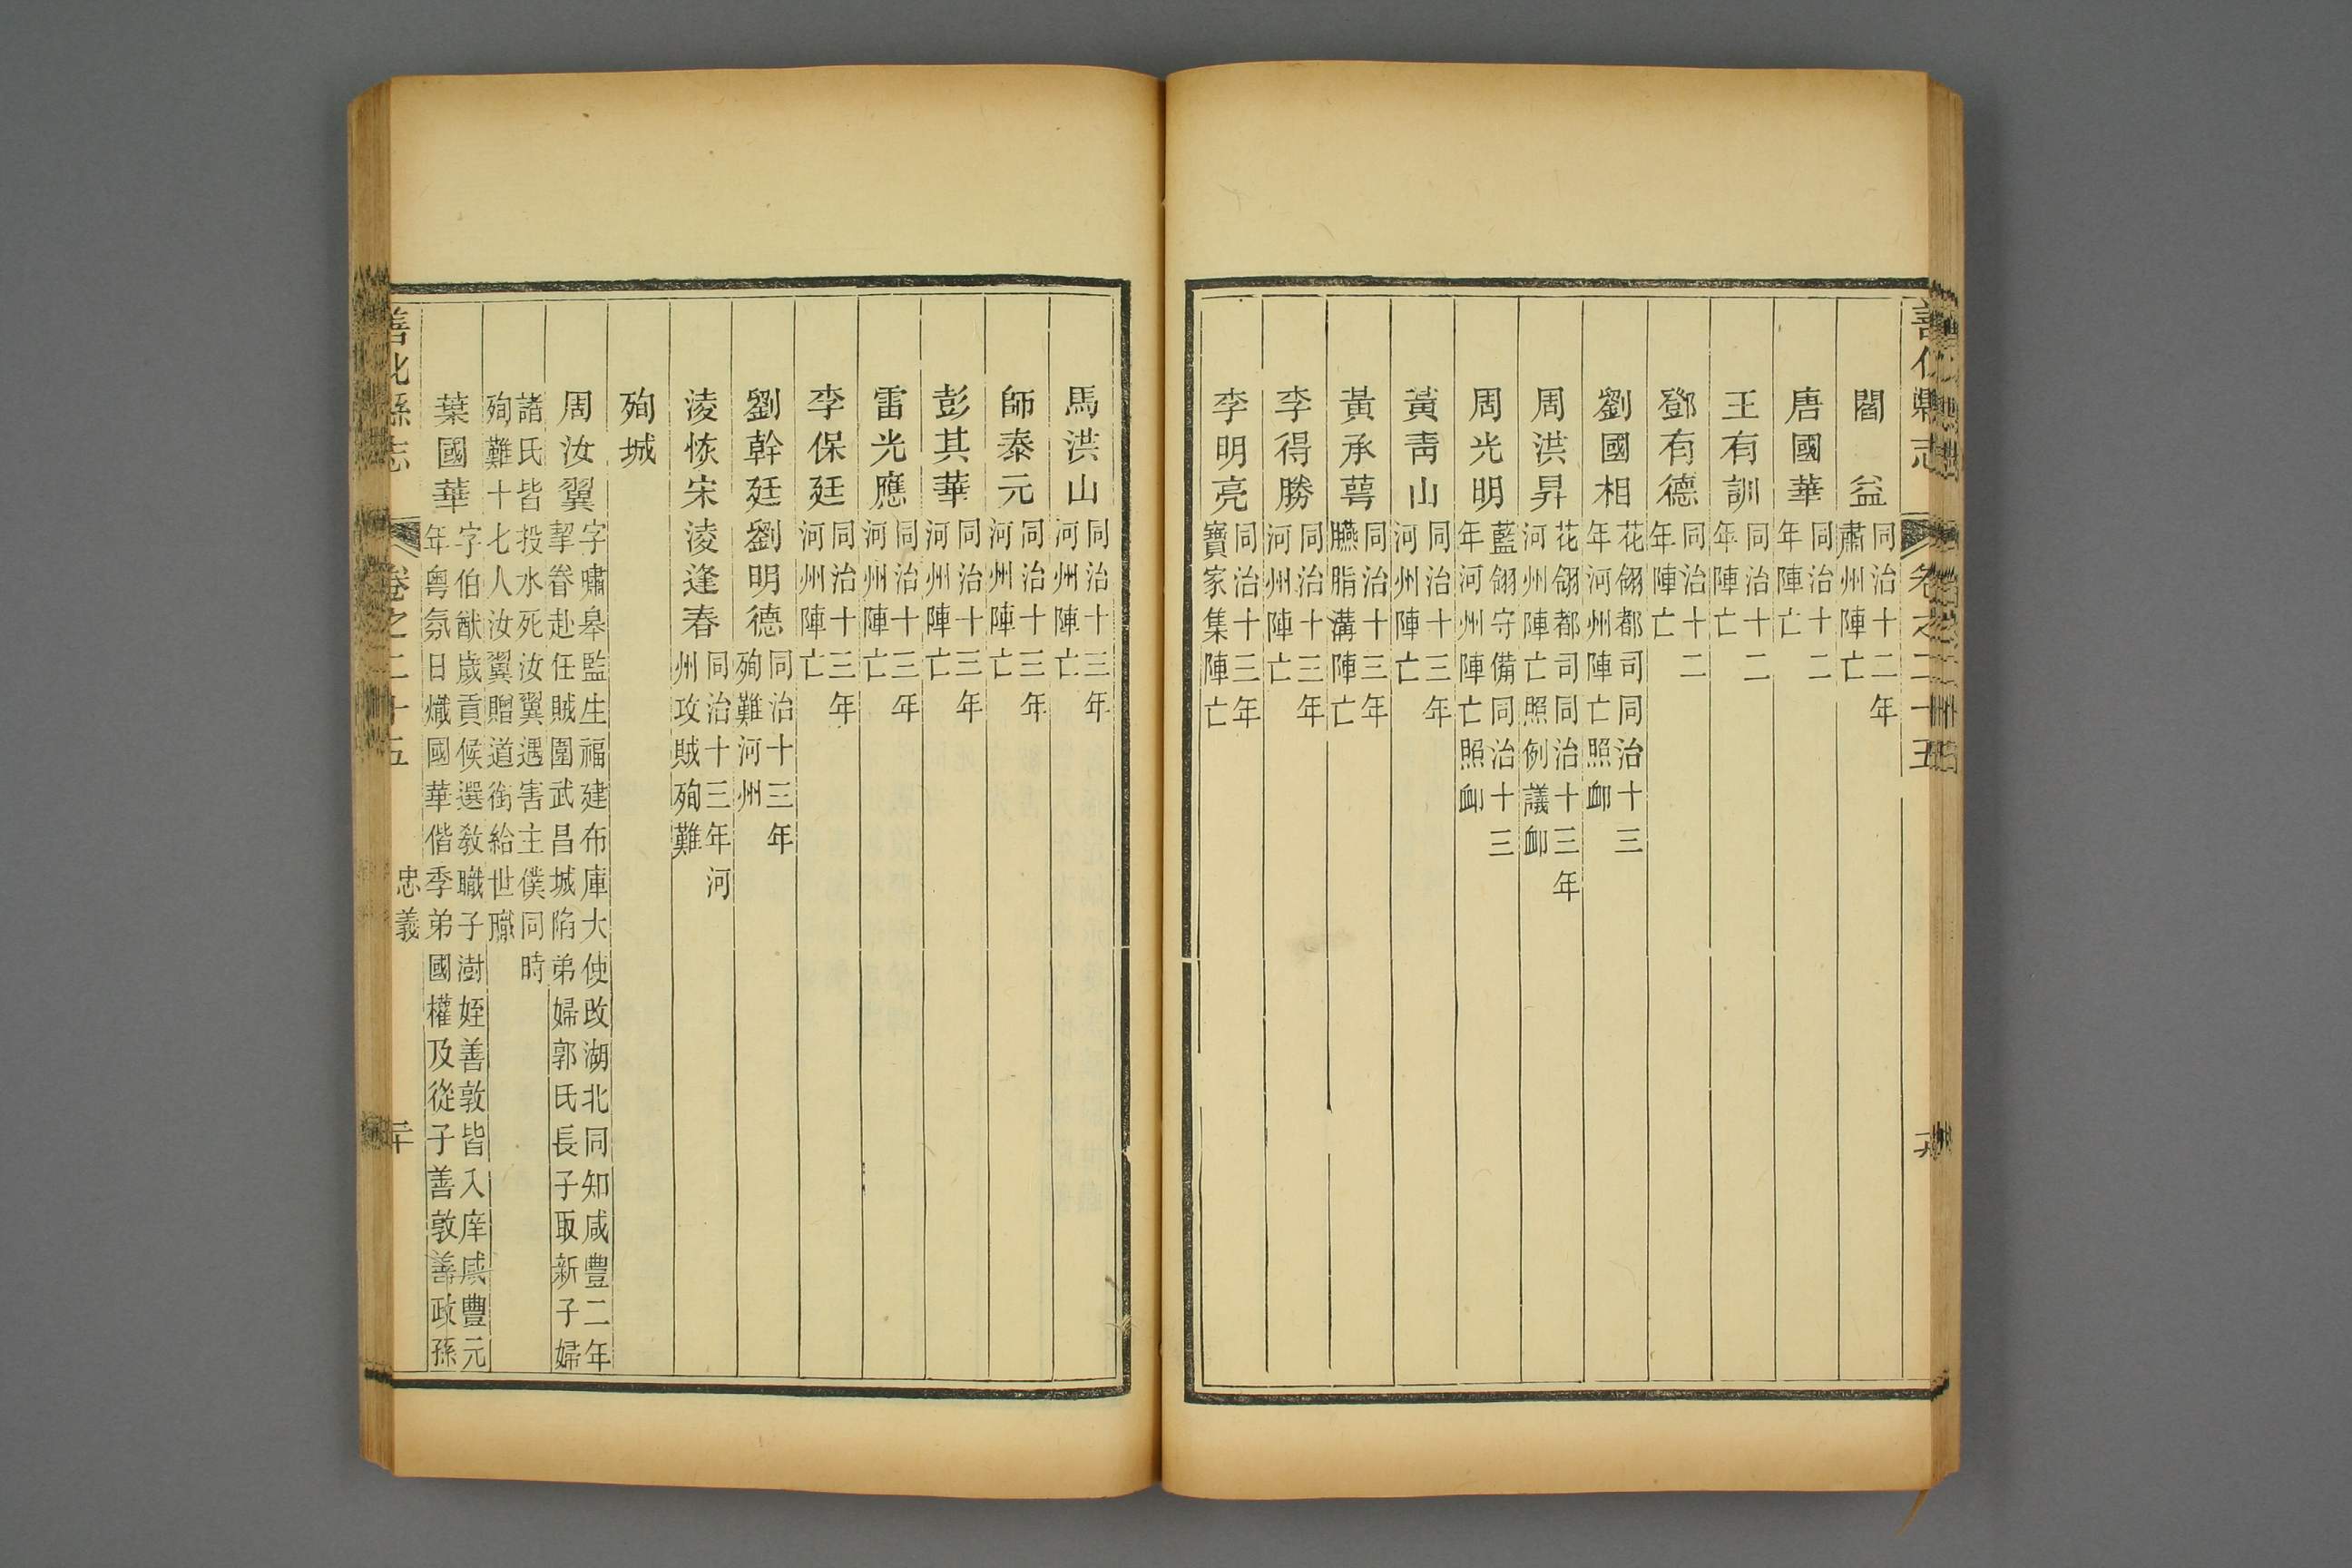 善化縣志
卷之二十五
閻益 同治十二年
肅州陣亡
唐國華 同治十二
年陣亡
王有訓 同治十二
年陣亡
鄧有德 同治十二
年陣亡
劉國相 花翎都司同治十三
年河州陣亡照卹
周洪昇 花翎都司同治十三年
河州陣亡照例議卹
周光明 藍翎守備同治十三
年河州陣亡照卹
黃靑山 同治十三年
河州陣亡
黃承蕚 同治十三年
臙脂溝陣亡
李得勝 同治十三年
河州陣亡
李明亮 同治十三年
寶家集陣亡
馬洪山 同治十三年
河州陣亡
師泰元 同治十三年
河州陣亡
彭其華 同治十三年
河州陣亡
雷光應 同治十三年
河州陣亡
李保廷 同治十三年
河州陣亡
劉幹廷劉明德 同治十三年
殉難河州
淩恢宋淩逢春 同治十三年河
州攻賊殉難
殉城
周汝翼 字嘯皋監生福建布庫大使改湖北同知咸豐二年
挈眷赴任賊圍武昌城陷弟婦郭氏長子取新子婦
諸氏皆投水死汝翼遇害主僕同時
殉難十七人汝翼贈道銜給世職
葉國華 字伯猷歲貢候選敎職子澍姪善敦皆入庠咸豐元
年粵氛日熾國華偕季弟國權及從子善敦善政孫
善化縣志
卷之二十五
忠義
二十